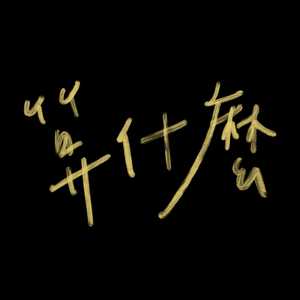 算什麼